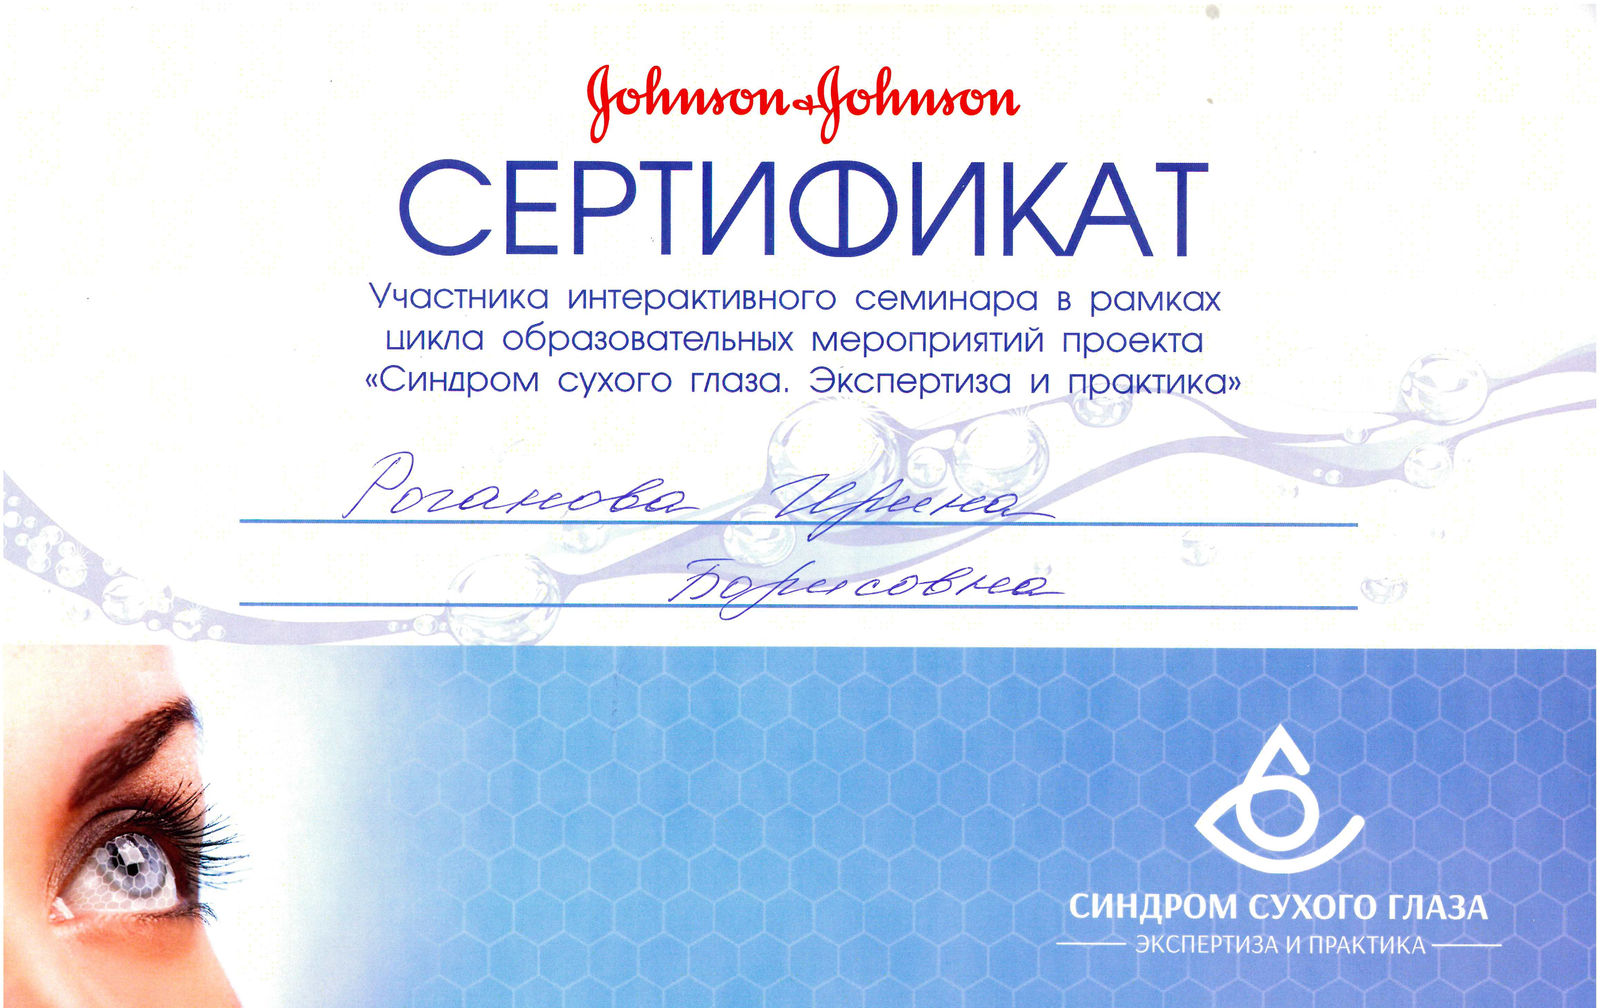 Johnson & Johnson
СЕРТИФИКАТ
Участника интерактивного семинара в рамках
цикла образовательных мероприятий проекта
«Синдром сухого глаза. Экспертиза и практика»
Роганова Ирина
Борисовна
СИНДРОМ СУХОГО ГЛАЗА
ЭКСПЕРТИЗА И ПРАКТИКА